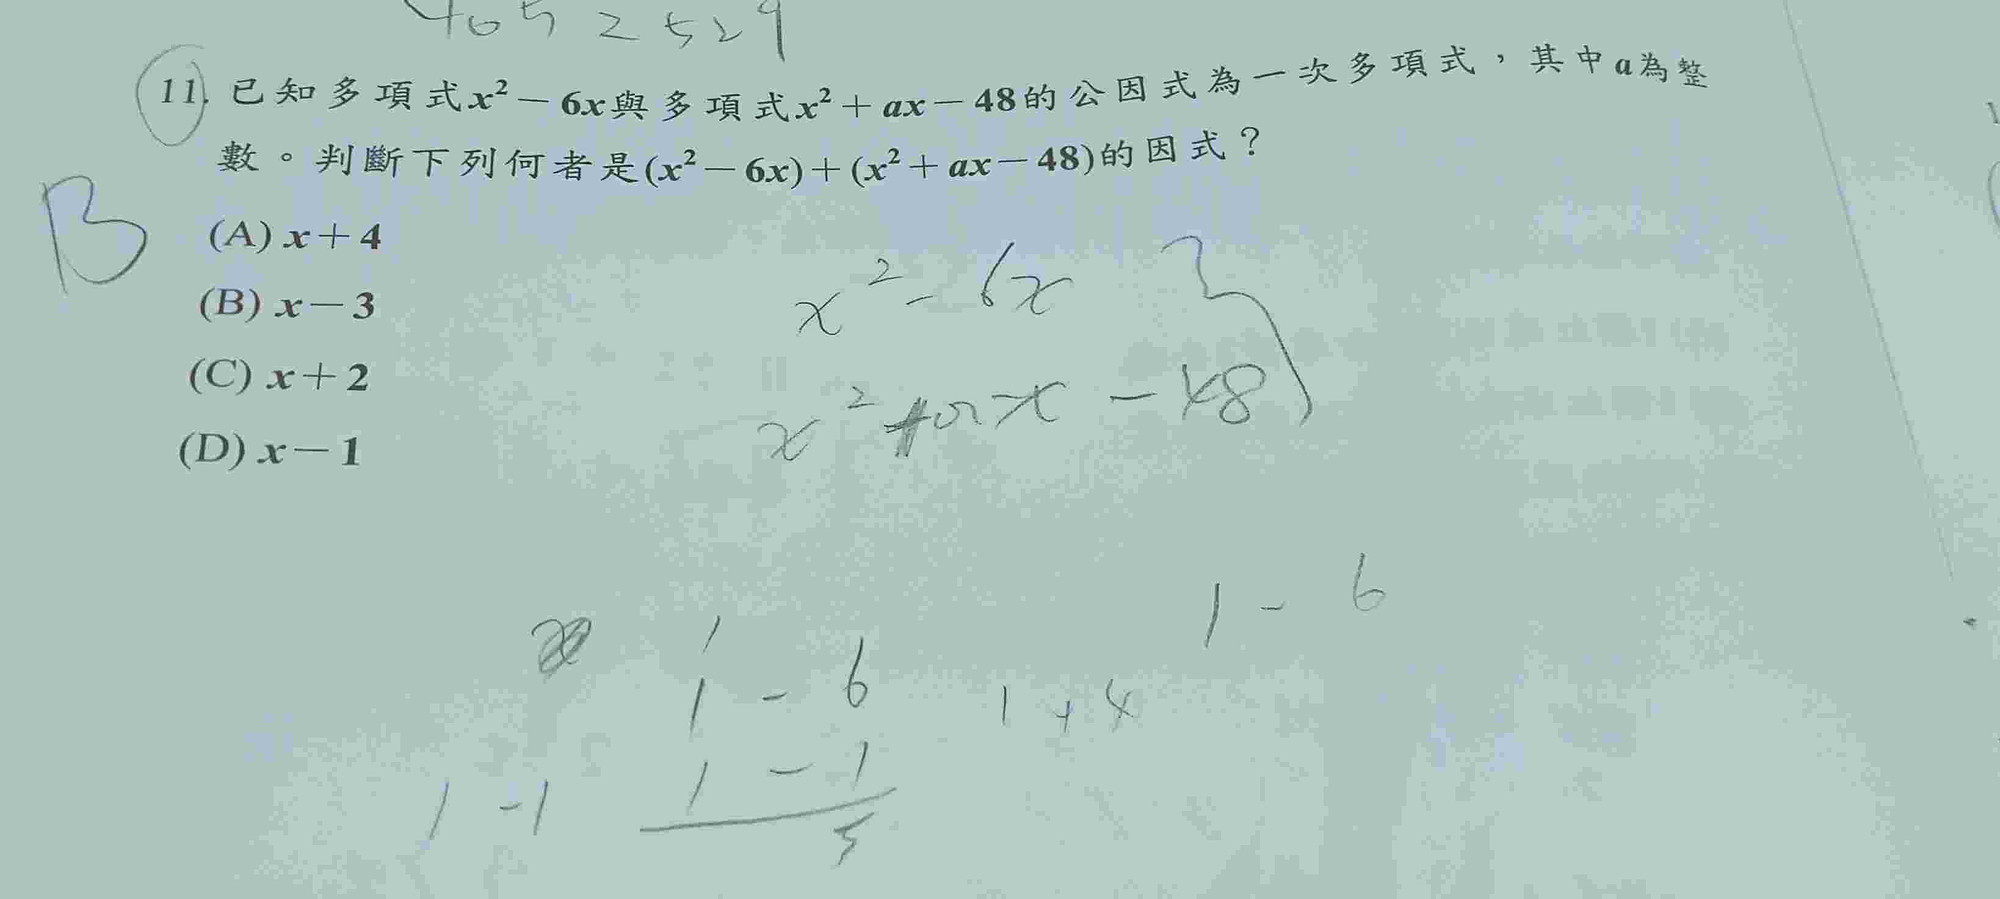 4052529
11. 已知多項式x²-6x與多項式x²+ax-48的公因式為一次多項式，其中a為整
數。判斷下列何者是(x²-6x)+(x²+ax-48)的因式？
B
(A) x+4
(B) x-3
(C) x+2
(D) x-1
x²-6x
x²+ax-48
1
1-6
1-6
1+4
1-1
1-1
5